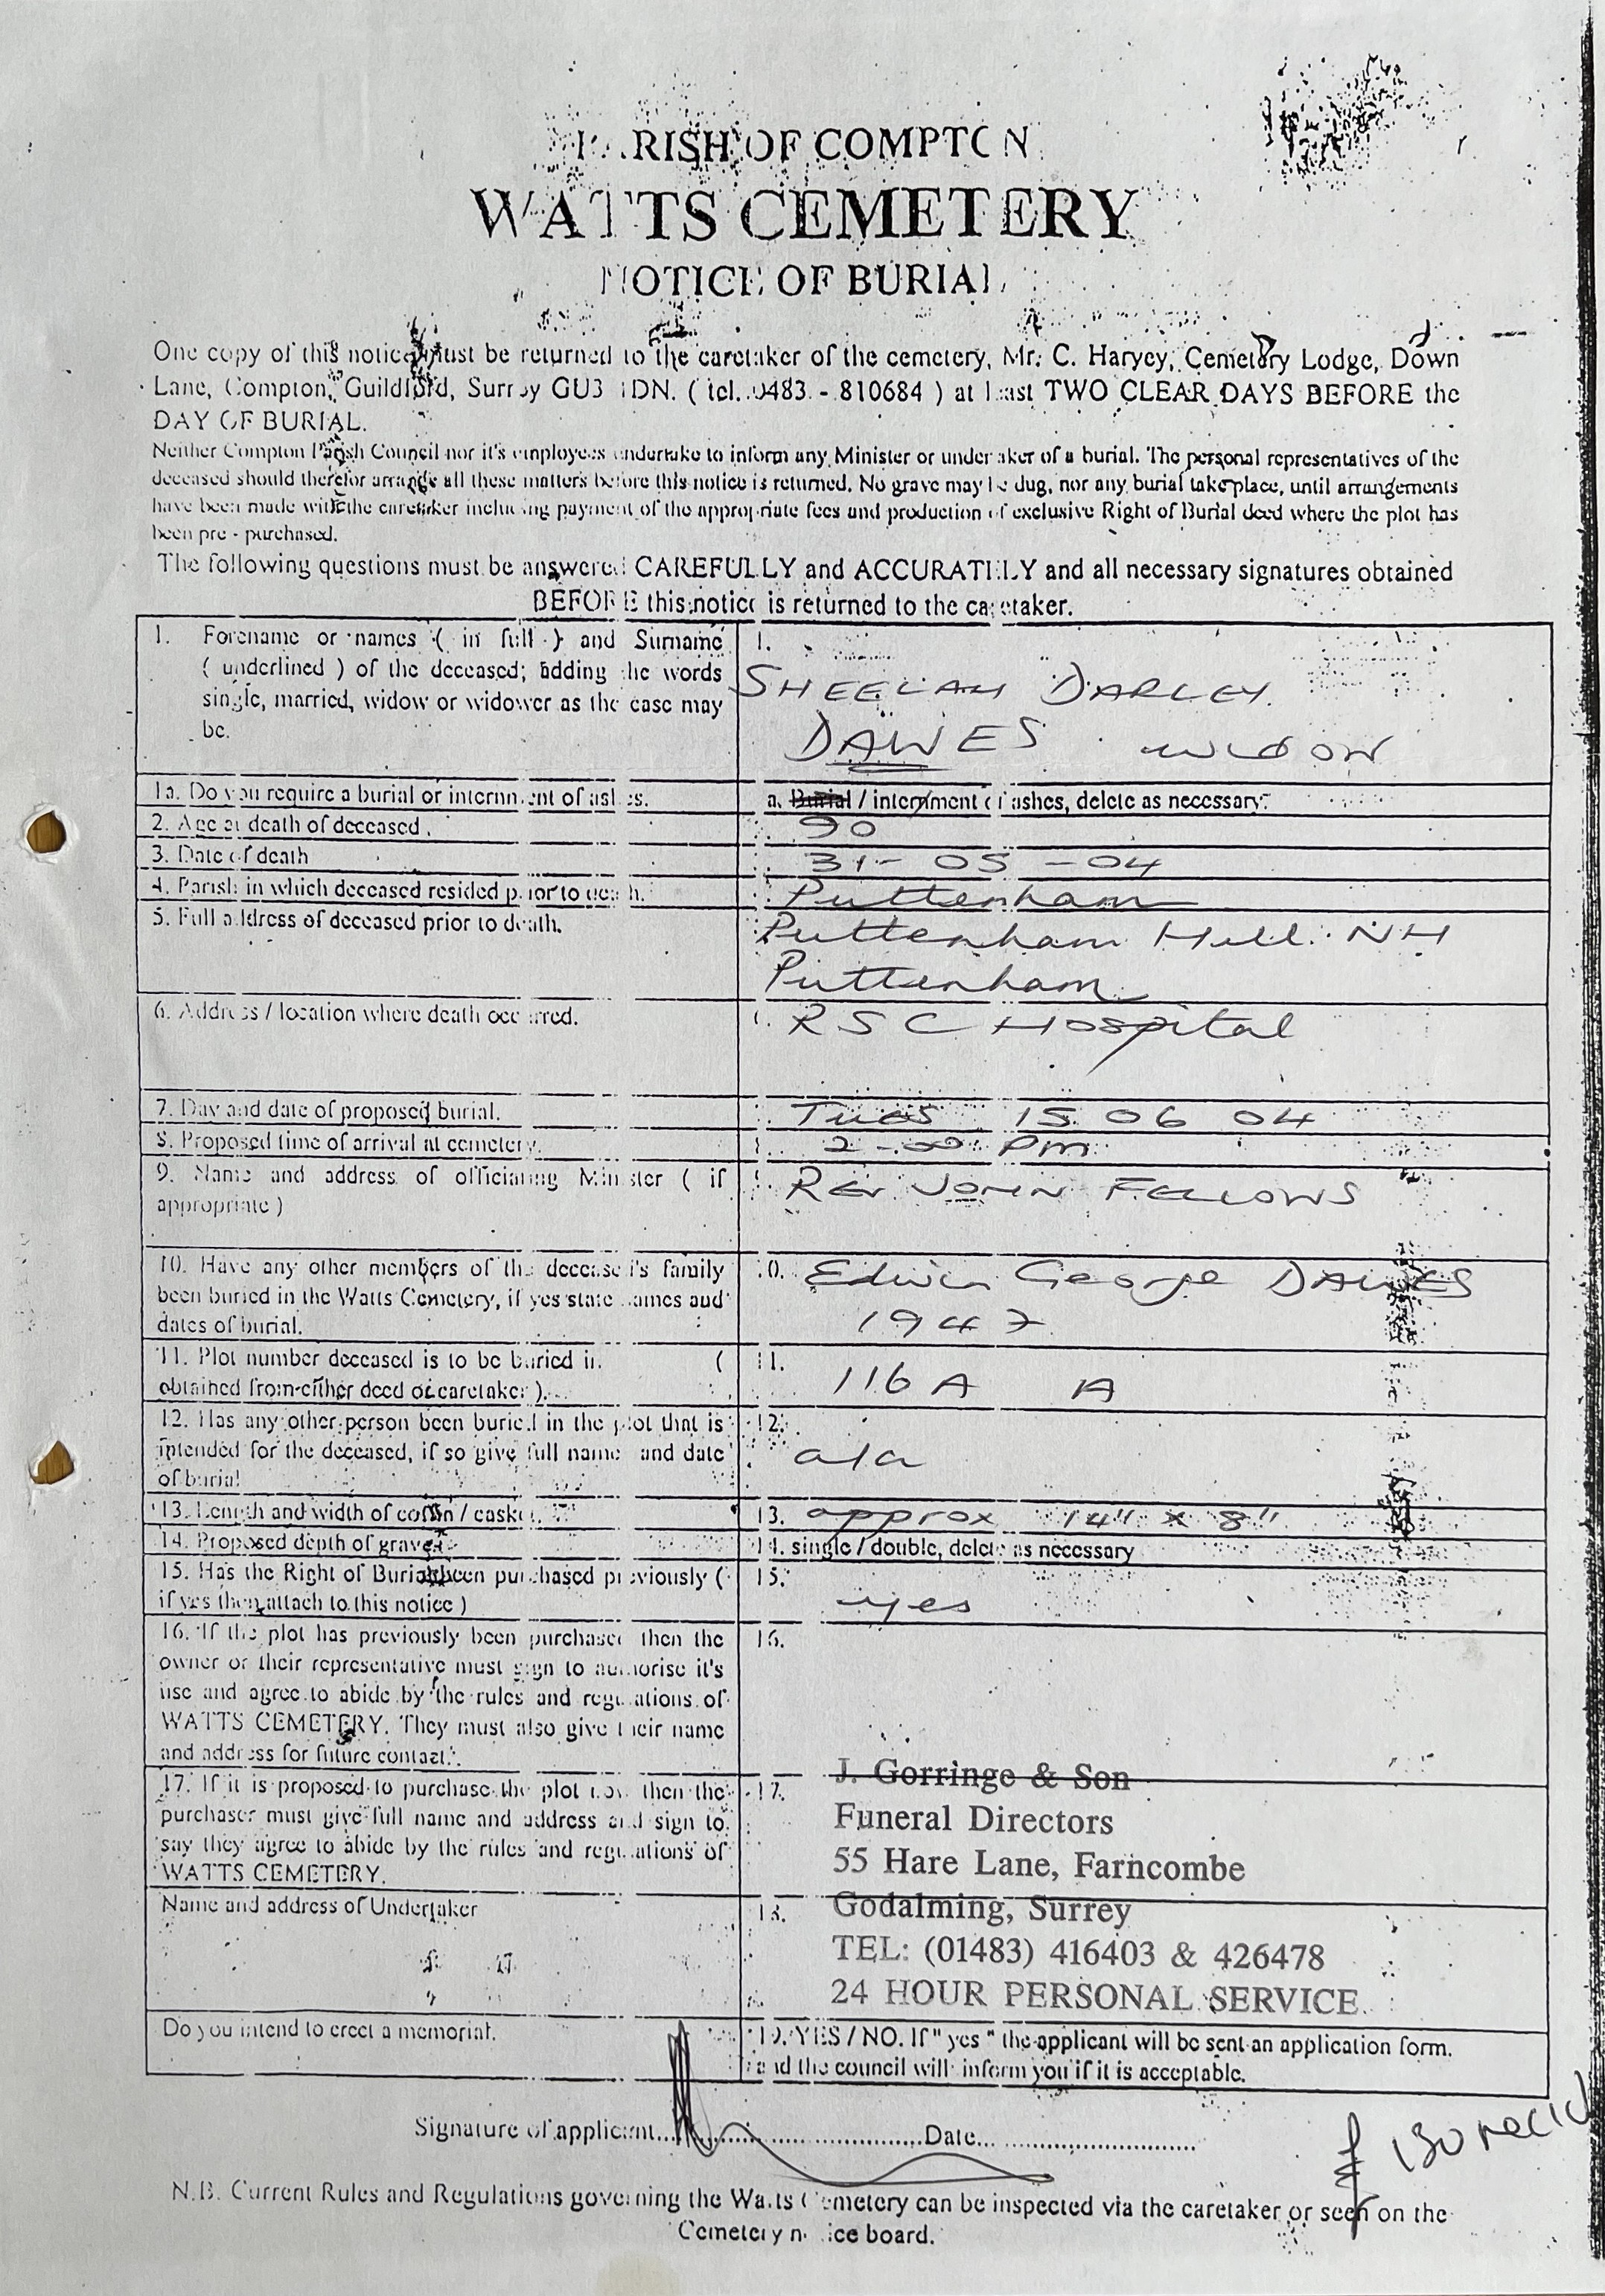 PARISH OF COMPTON
WATTS CEMETERY
NOTICE OF BURIAL
One copy of this notice must be returned to the caretaker of the cemetery, Mr. C. Harvey, Cemetery Lodge, Down
Lane, Compton, Guildford, Surrey GU3 1DN. ( tel. 0483 - 810684 ) at least TWO CLEAR DAYS BEFORE the
DAY OF BURIAL.
Neither Compton Parish Council nor it's employees undertake to inform any Minister or undertaker of a burial. The personal representatives of the
deceased should therefor arrange all these matters before this notice is returned. No grave may be dug, nor any burial take place, until arrangements
have been made with the caretaker including payment of the appropriate fees and production of exclusive Right of Burial deed where the plot has
been pre - purchased.
The following questions must be answered CAREFULLY and ACCURATELY and all necessary signatures obtained
BEFORE this notice is returned to the caretaker.
1. Forename or names ( in full ) and Surname
( underlined ) of the deceased; adding the words
single, married, widow or widower as the case may
be.
1.
SHEELAH DARLEY.
DAWES . WIDOW
1a. Do you require a burial or internment of ashes.
a. Burial / internment of ashes, delete as necessary.
2. Age at death of deceased.
90
3. Date of death
31 - 05 - 04
4. Parish in which deceased resided prior to death.
Puttenham
5. Full address of deceased prior to death.
Puttenham Hill. NH
Puttenham
6. Address / location where death occurred.
RSC Hospital
7. Day and date of proposed burial.
Tues 15 06 04
8. Proposed time of arrival at cemetery.
2-00 pm
9. Name and address of officiating Minister ( if
appropriate )
REV JOHN FELLOWS
10. Have any other members of the deceased's family
been buried in the Watts Cemetery, if yes state names and
dates of burial.
10. Edwin George DAWES
1947
11. Plot number deceased is to be buried in. (
obtained from either deed or caretaker ).
11.
116 A A
12. Has any other person been buried in the plot that is
intended for the deceased, if so give full name and date
of burial
12.
a/a
13. Length and width of coffin / casket.
13. approx 14" x 8"
14. Proposed depth of grave.
14. single / double, delete as necessary
15. Has the Right of Burial been purchased previously (
if yes then attach to this notice )
15.
yes
16. If the plot has previously been purchased then the
owner or their representative must sign to authorise it's
use and agree to abide by the rules and regulations of
WATTS CEMETERY. They must also give their name
and address for future contact.
16.
17. If it is proposed to purchase the plot now then the
purchaser must give full name and address and sign to
say they agree to abide by the rules and regulations of
WATTS CEMETERY.
17.
J. Gorringe & Son
Funeral Directors
55 Hare Lane, Farncombe
Name and address of Undertaker
18.
Godalming, Surrey
TEL: (01483) 416403 & 426478
24 HOUR PERSONAL SERVICE
Do you intend to erect a memorial.
19. YES / NO. If " yes " the applicant will be sent an application form.
and the council will inform you if it is acceptable.
Signature of applicant.....................................Date..................................
£ 130 rec'd
N.B. Current Rules and Regulations governing the Watts Cemetery can be inspected via the caretaker or seen on the
Cemetery notice board.